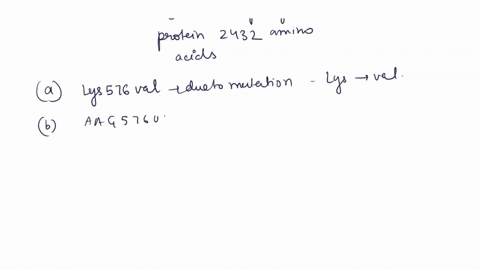 protein 2432 amino
acids
(a) Lys 576 val → due to mutation - Lys → val.
(b) AAG 576 U.